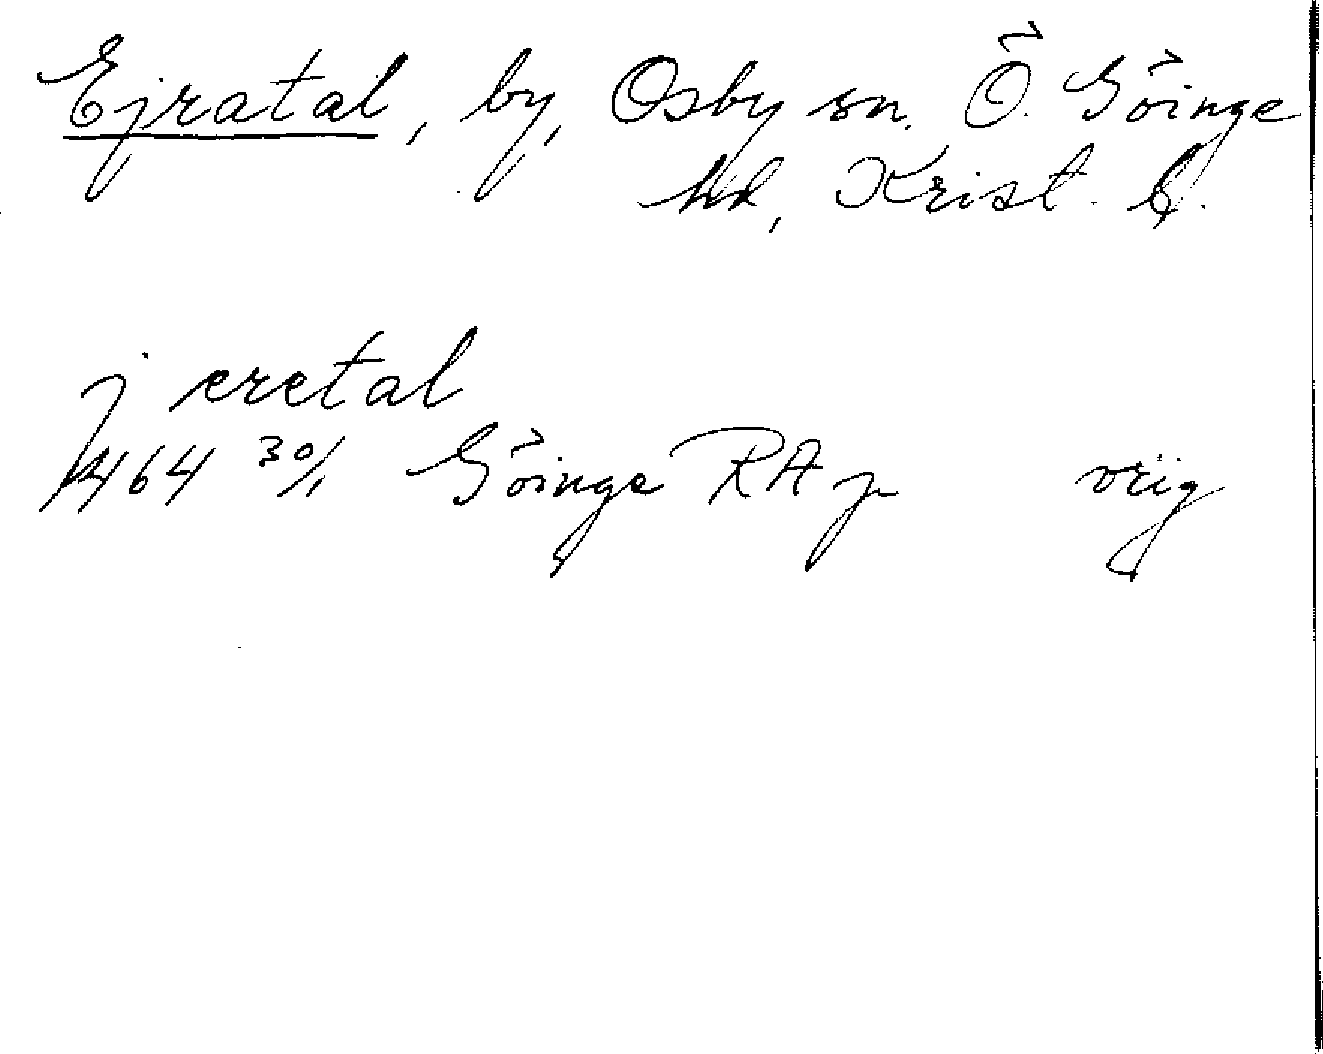 Ejratal, by, Osby sn. Ö. Göinge
hd, Krist. l.
j eretal
1464 30/1 Göinge RAp orig